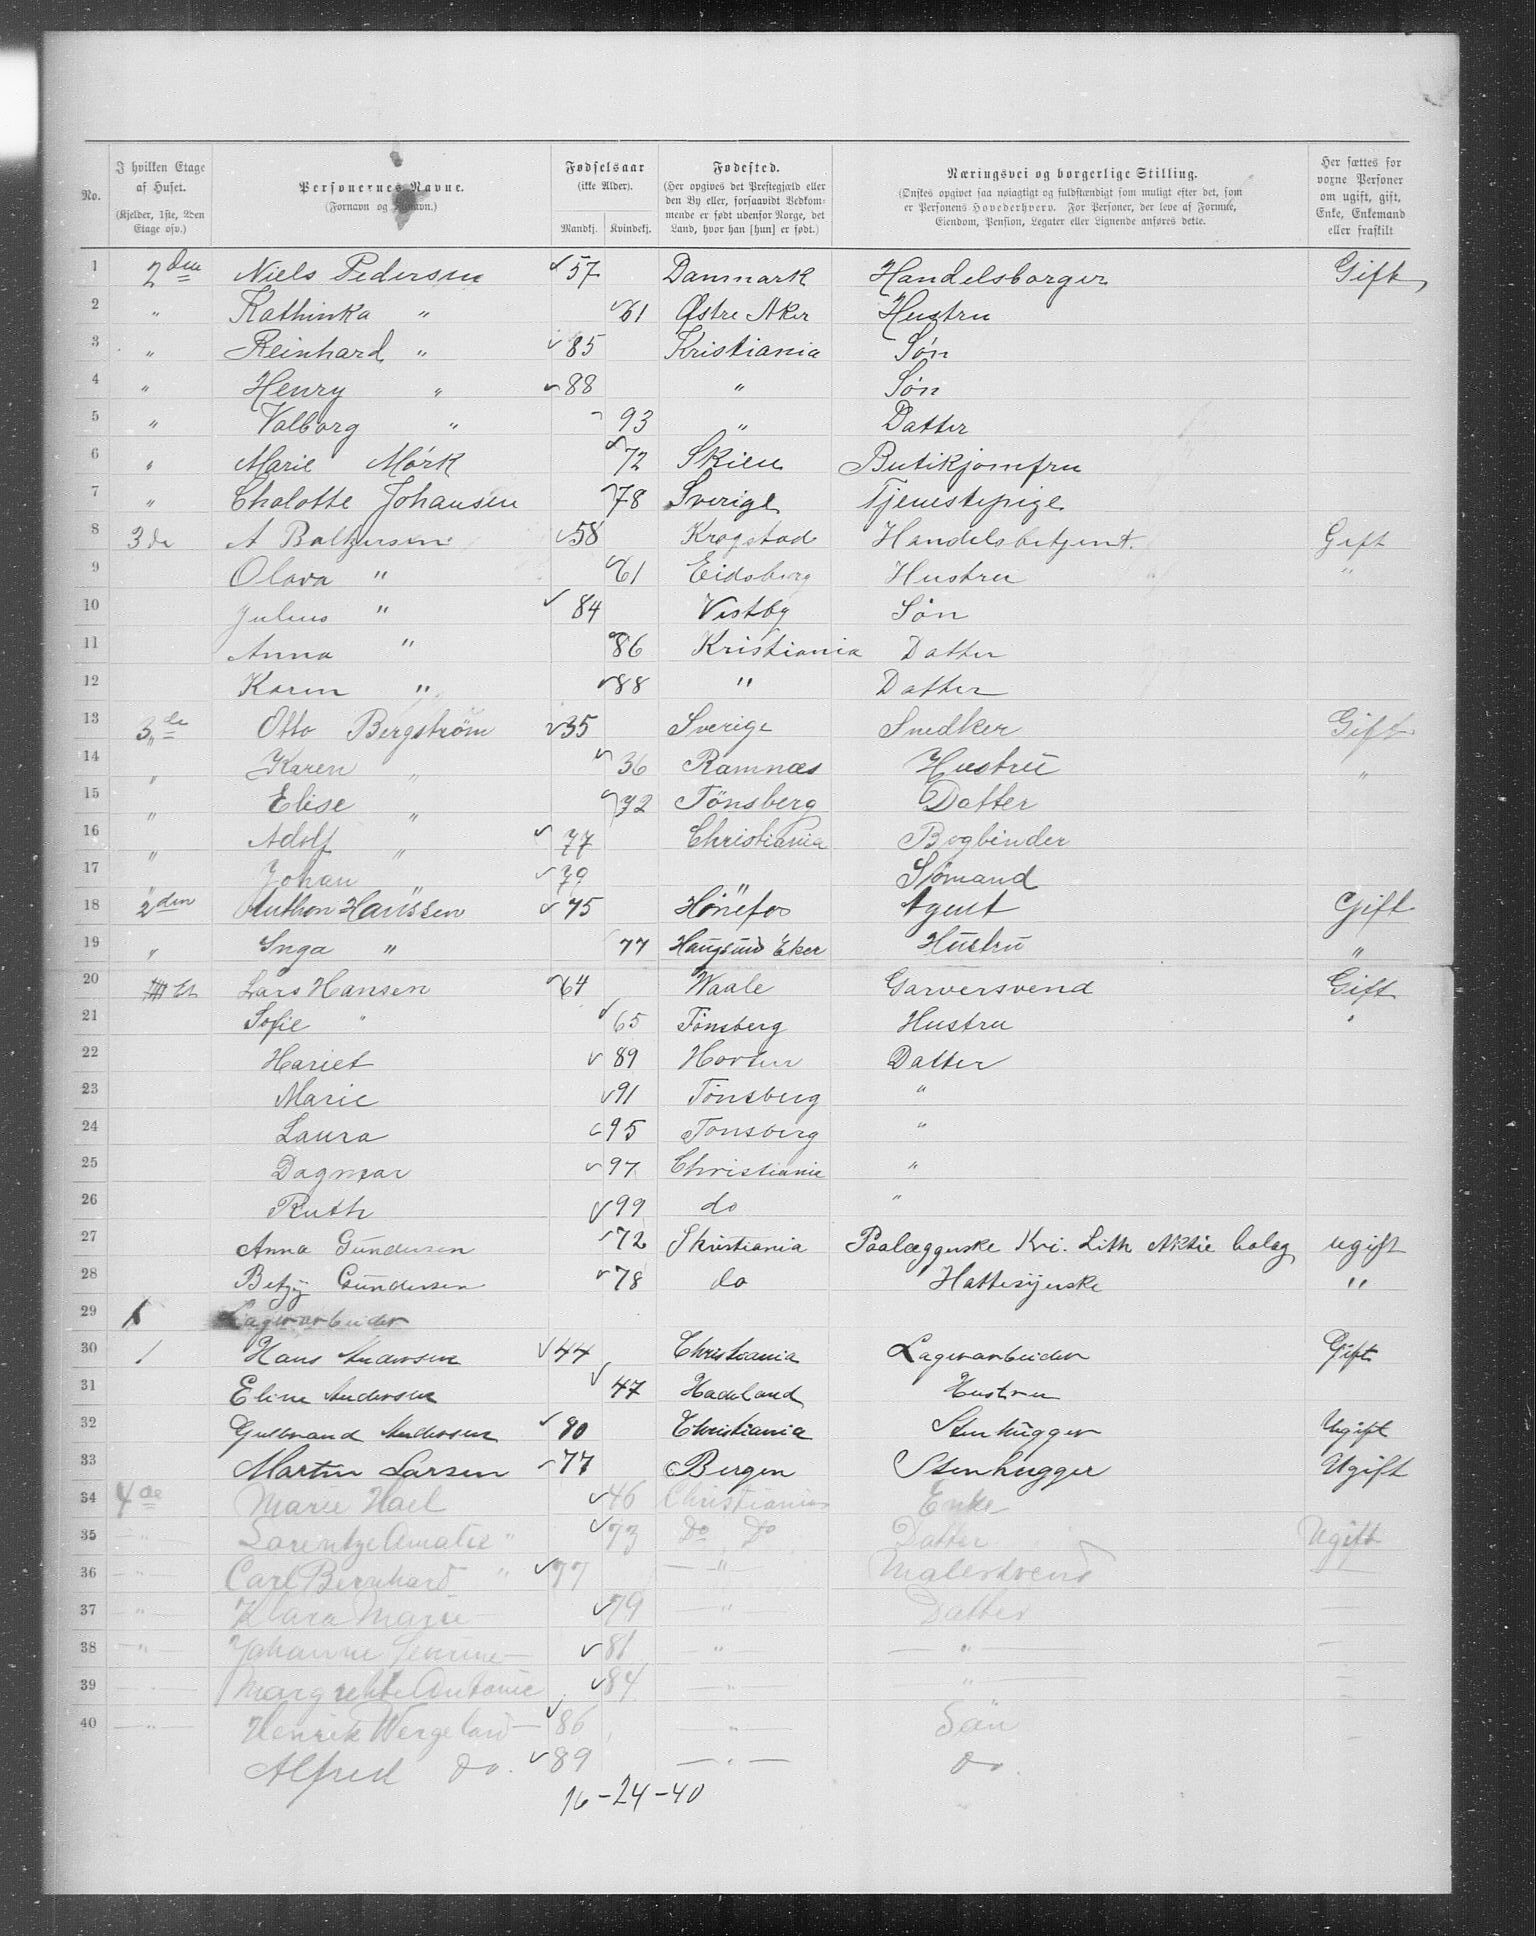 No. | I hvilken Etage af Huset. (Kjelder, 1ste, 2den Etage osv.) | Personernes Navne. (Fornavn og Tilnavn.) | Fødselsaar (ikke Alder). Mandkj. Kvindekj. | Fødested. (Her opgives det Prestegjæld eller den By eller, forsaavidt Vedkommende er født udenfor Norge, det Land, hvor han [hun] er født.) | Næringsvei og borgerlige Stilling. (Ønskes opgivet saa nøiagtigt og fuldstændigt som muligt efter det, som er Personens Hovederhverv. For Personer, der leve af Formue, Eiendom, Pension, Legater eller Lignende anføres dette. | Her sættes for voxne Personer om ugift, gift, Enke, Enkemand eller fraskilt
1 2den Niels Pedersen 57 Danmark Handelsborger Gift
2 " Kathinka " 61 Østre Aker Hustru
3 " Reinhard " 85 Kristiania Søn
4 " Henry " 88 " Søn
5 " Valborg " 93 " Datter
6 " Marie Mørk 72 Skien Butikjomfru
7 " Chalotte Johansen 78 Sverige Tjenestepige
8 3de A Baltzersen 58 Krogstad Handelsbetjent. Gift
9 Olava " 61 Eidsberg Hustru "
10 Julius " 84 Vestby Søn
11 Anna " 86 Kristiania Datter
12 Karen " 88 " Datter
13 3de Otto Bergstrøm 35 Sverige Snedker Gift
14 " Karen " 36 Ramnæs Hustru "
15 " Elise " 72 Tönsberg Datter
16 " Adolf " 77 Christiania Bogbinder
17 " Johan 79 Sømand
18 2den Anthon Hanssen 75 Hönefos Agent Gift
19 " Inga " 77 Haugsund Eker Hustru "
20 Et Lars Hansen 64 Waale Garversvend Gift
21 Sofie " 65 Tönsberg Hustru "
22 Hariet 89 Horten Datter
23 Marie 91 Tönsberg "
24 Laura 95 Tonsberg "
25 Dagmar 97 Christiania "
26 Ruth 99 do "
27 Anna Gundersen 72 Kristiania Paalæggerske Kri. Lith Aktie bolag ugift
28 Betzy Gundersen 78 do Hattesyerske "
29 Lagerarbeider
30 / Hans Andersen 44 Christiania Lagerarbeider Gift
31 Eline Andersen 47 Hadeland Hustru
32 Gulbrand Andersen 80 Christiania Stenhugger Ugift
33 Martin Larsen 77 Bergen Stenhugger Ugift
34 4de Marie Hoel 46 Christiania Enke
35 " Larentze Amalie " 73 Do Do Datter Ugift
36 " Carl Bernhard " 77 " Malersvend
37 " Klara Marie 79 " Datter
38 " Johanne 81 " "
39 " Margrethe Antonie 84 " "
40 " Henrik Wergeland 86 " Sän
Alfred Do. 89 " Do
16-24-40